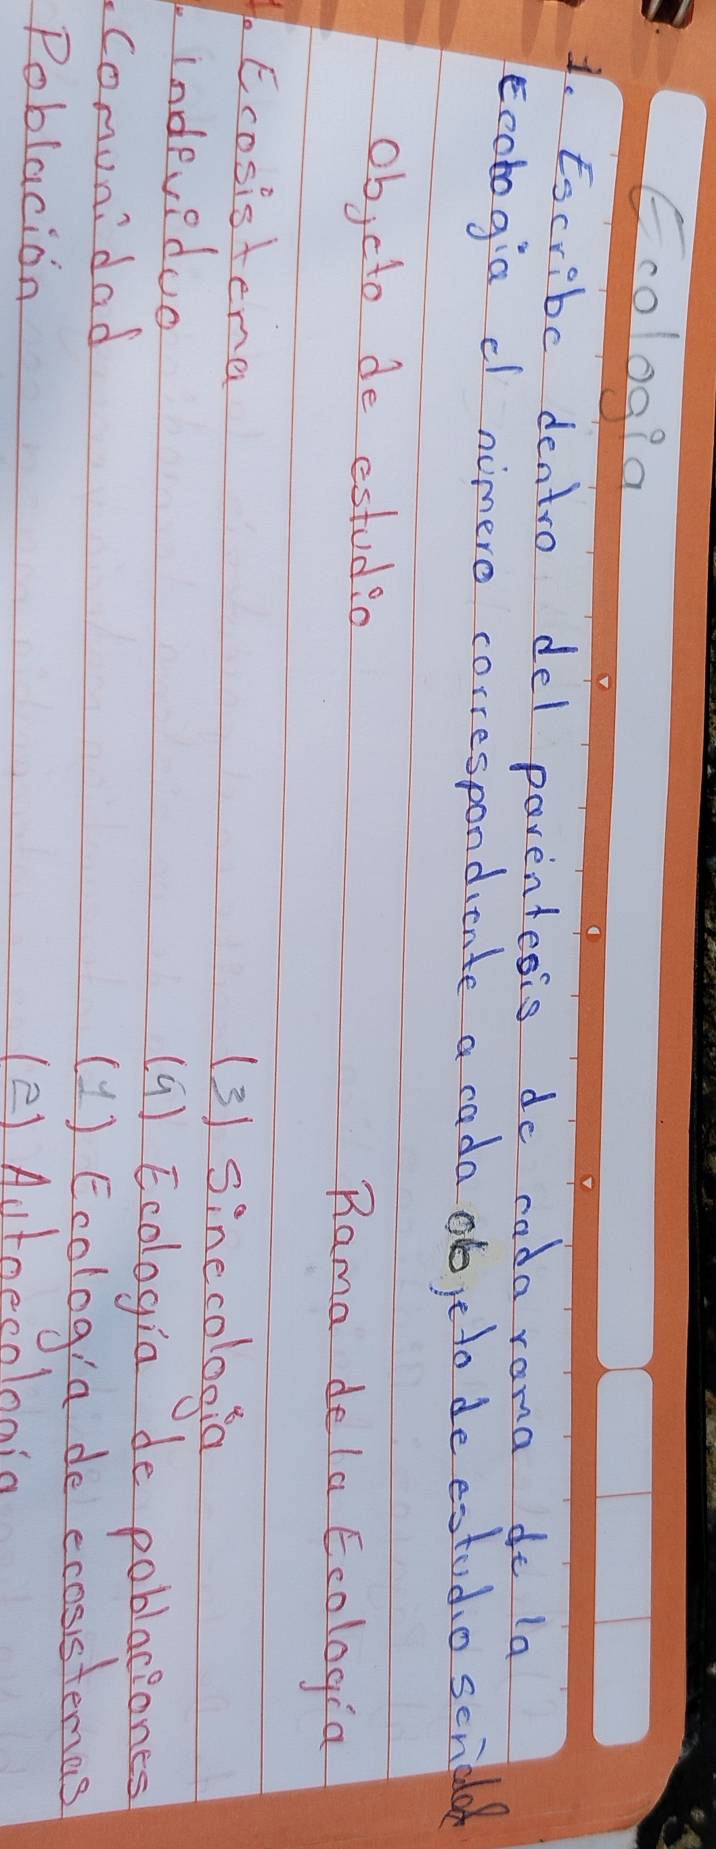 Ecología
1. Escribe dentro del paréntesis de cada rama de la
Ecología el número correspondiente a cada objeto de estudio
objeto de estudio Rama de la Ecología
1. Ecosistema (3) Sinecología
. individuo (4) Ecología de poblaciones
. Comunidad (1) Ecología de ecosistemas
Población (2) Autoecología